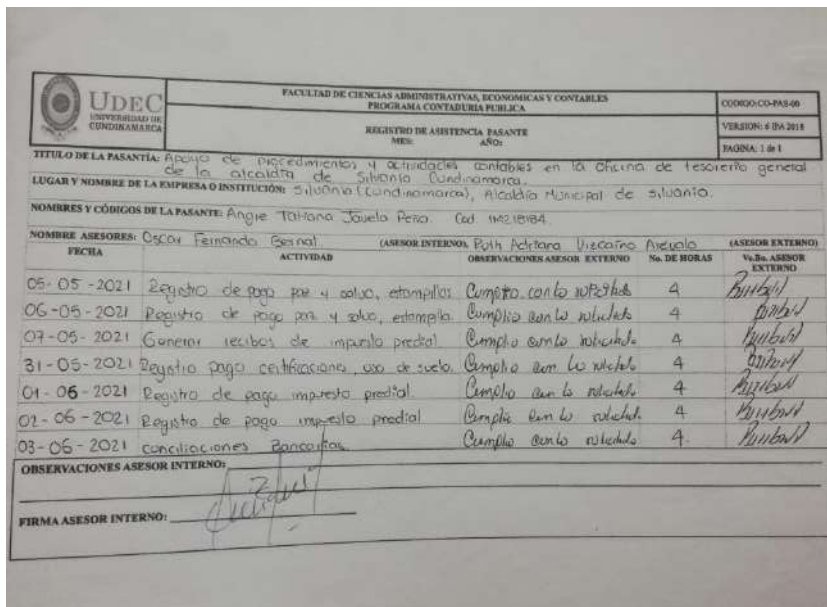 UDEC
UNIVERSIDAD DE
CUNDINAMARCA
FACULTAD DE CIENCIAS ADMINISTRATIVAS, ECONOMICAS Y CONTABLES
PROGRAMA CONTADURIA PUBLICA
REGISTRO DE ASISTENCIA PASANTE
MES: AÑO:
CODIGO:CO-PAS-00
VERSION: 6 IPA 2018
PAGINA: 1 de 1
TITULO DE LA PASANTÍA: Apoyo de procedimientos y actividades contables en la oficina de tesoreria general
de la alcaldia de Silvania Cundinamarca.
LUGAR Y NOMBRE DE LA EMPRESA O INSTITUCIÓN: Silvania (Cundinamarca), Alcaldía Municipal de Silvania.
NOMBRES Y CÓDIGOS DE LA PASANTE: Angie Tatiana Javela Peña. Cod
NOMBRE ASESORES: Oscar Fernando Bernal (ASESOR INTERNO), Ruth Adriana Vizcaino Arevalo (ASESOR EXTERNO)
FECHA ACTIVIDAD OBSERVACIONES ASESOR EXTERNO No. DE HORAS Vo.Bo. ASESOR
EXTERNO
05-05-2021 Registro de pago paz y salvo, estampillas Cumplio con lo 4
06-05-2021 Registro de pago paz y salvo, estampilla. Cumplio con lo solicitado 4
07-05-2021 Generar recibos de impuesto predial Cumplio con lo solicitado 4
31-05-2021 Registro pago certificaciones, uso de suelo. Cumplio con lo solicitado 4
01-06-2021 Registro de pago impuesto predial. Cumplio con lo solicitado 4
02-06-2021 Registro de pago impuesto predial Cumplio con lo solicitado. 4
03-06-2021 conciliaciones Bancarias Cumplio con lo solicitado 4.
OBSERVACIONES ASESOR INTERNO:
FIRMA ASESOR INTERNO: